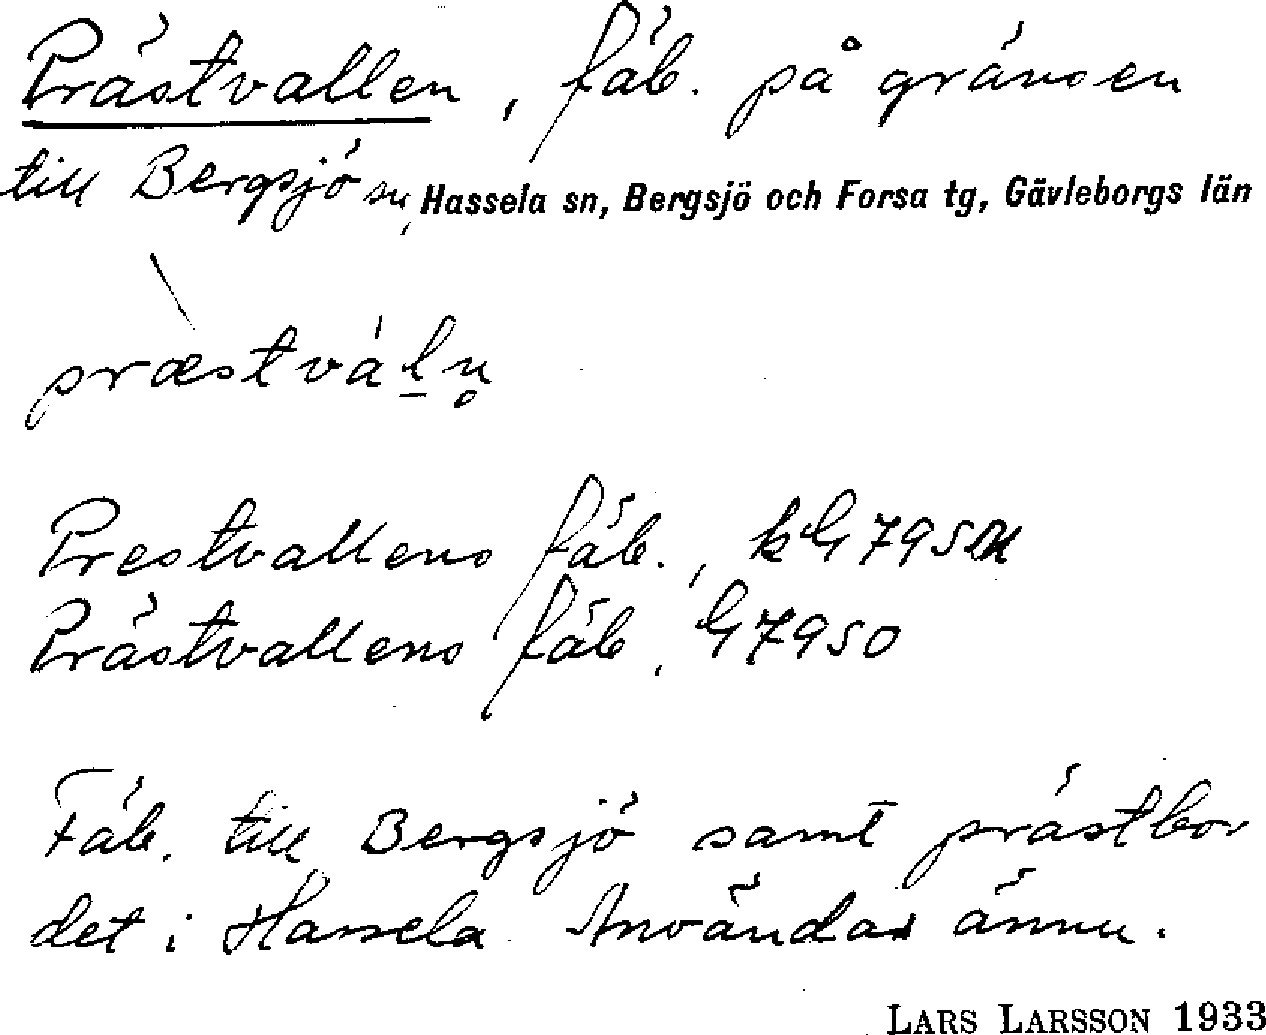 Prästvallen, fäb. på gränsen
till Bergsjö sn, Hassela sn, Bergsjö och Forsa tg, Gävleborgs län
præstválṇ
Prestvallens fäb., kG 795
Prästvallens fäb, G 7950
Fäb. till Bergsjö samt prästbor
det i Hassela. Användas ännu.
LARS LARSSON 1933